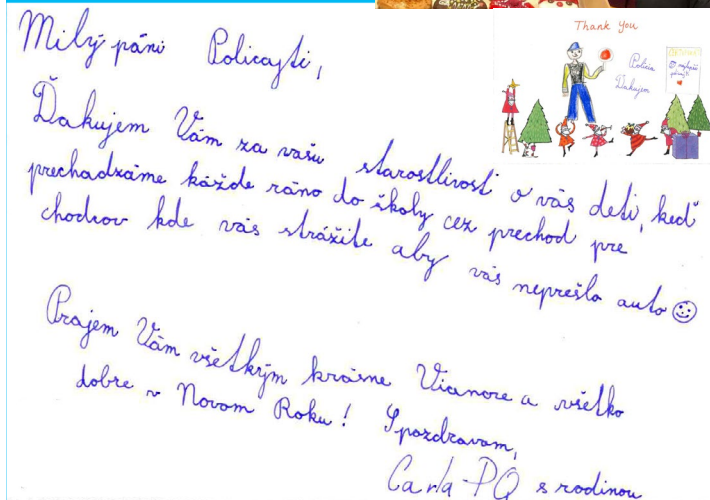 Milý páni Policajti,
Ďakujem Vám za vašu starostlivosť o vás deti, keď
prechadzáme káżde ráno do školy cez prechod pre
chodcov kde vás strážite aby vás neprešlo auto ☺
Prajem Vám všetkým krásne Vianoce a všetko
dobre v Novom Roku! Spozdravom,
Carla-PQ s rodinou
Thank You
Polícia
Ďakujem